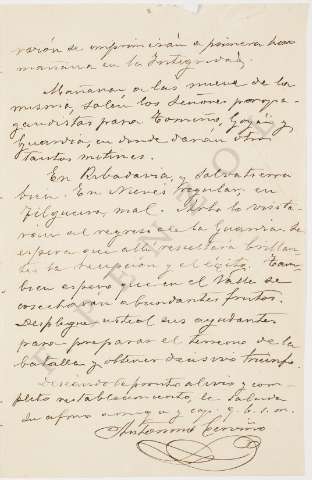 ración se imprimirán a primera hora
mañana en la Integridad,
Mañana a las nueve de la
misma, salen los Señores propa-
gandistas para Tomiño, Goyán y
Guardia, en donde darán otros
tantos mitines.
En Ribadavia, y Salvatierra
bien. En Nieves regular, en
Filgueira, mal. Arbo la visita-
rán al regreso de la Guardia. Se
espera que allí resultará brillan-
te la recepción y el éxito. Tam-
bien espero que en el Valle se
cosecharán abundantes frutos.
Despliegue usted sus ayudantes
para preparar el terreno de la
batalla y obtener decisivo triunfo.
Deseándole pronto alivio y com-
pleto restablecimiento, le saluda
su afmo amigo y q. b. s. m.
Antonino Cerviño